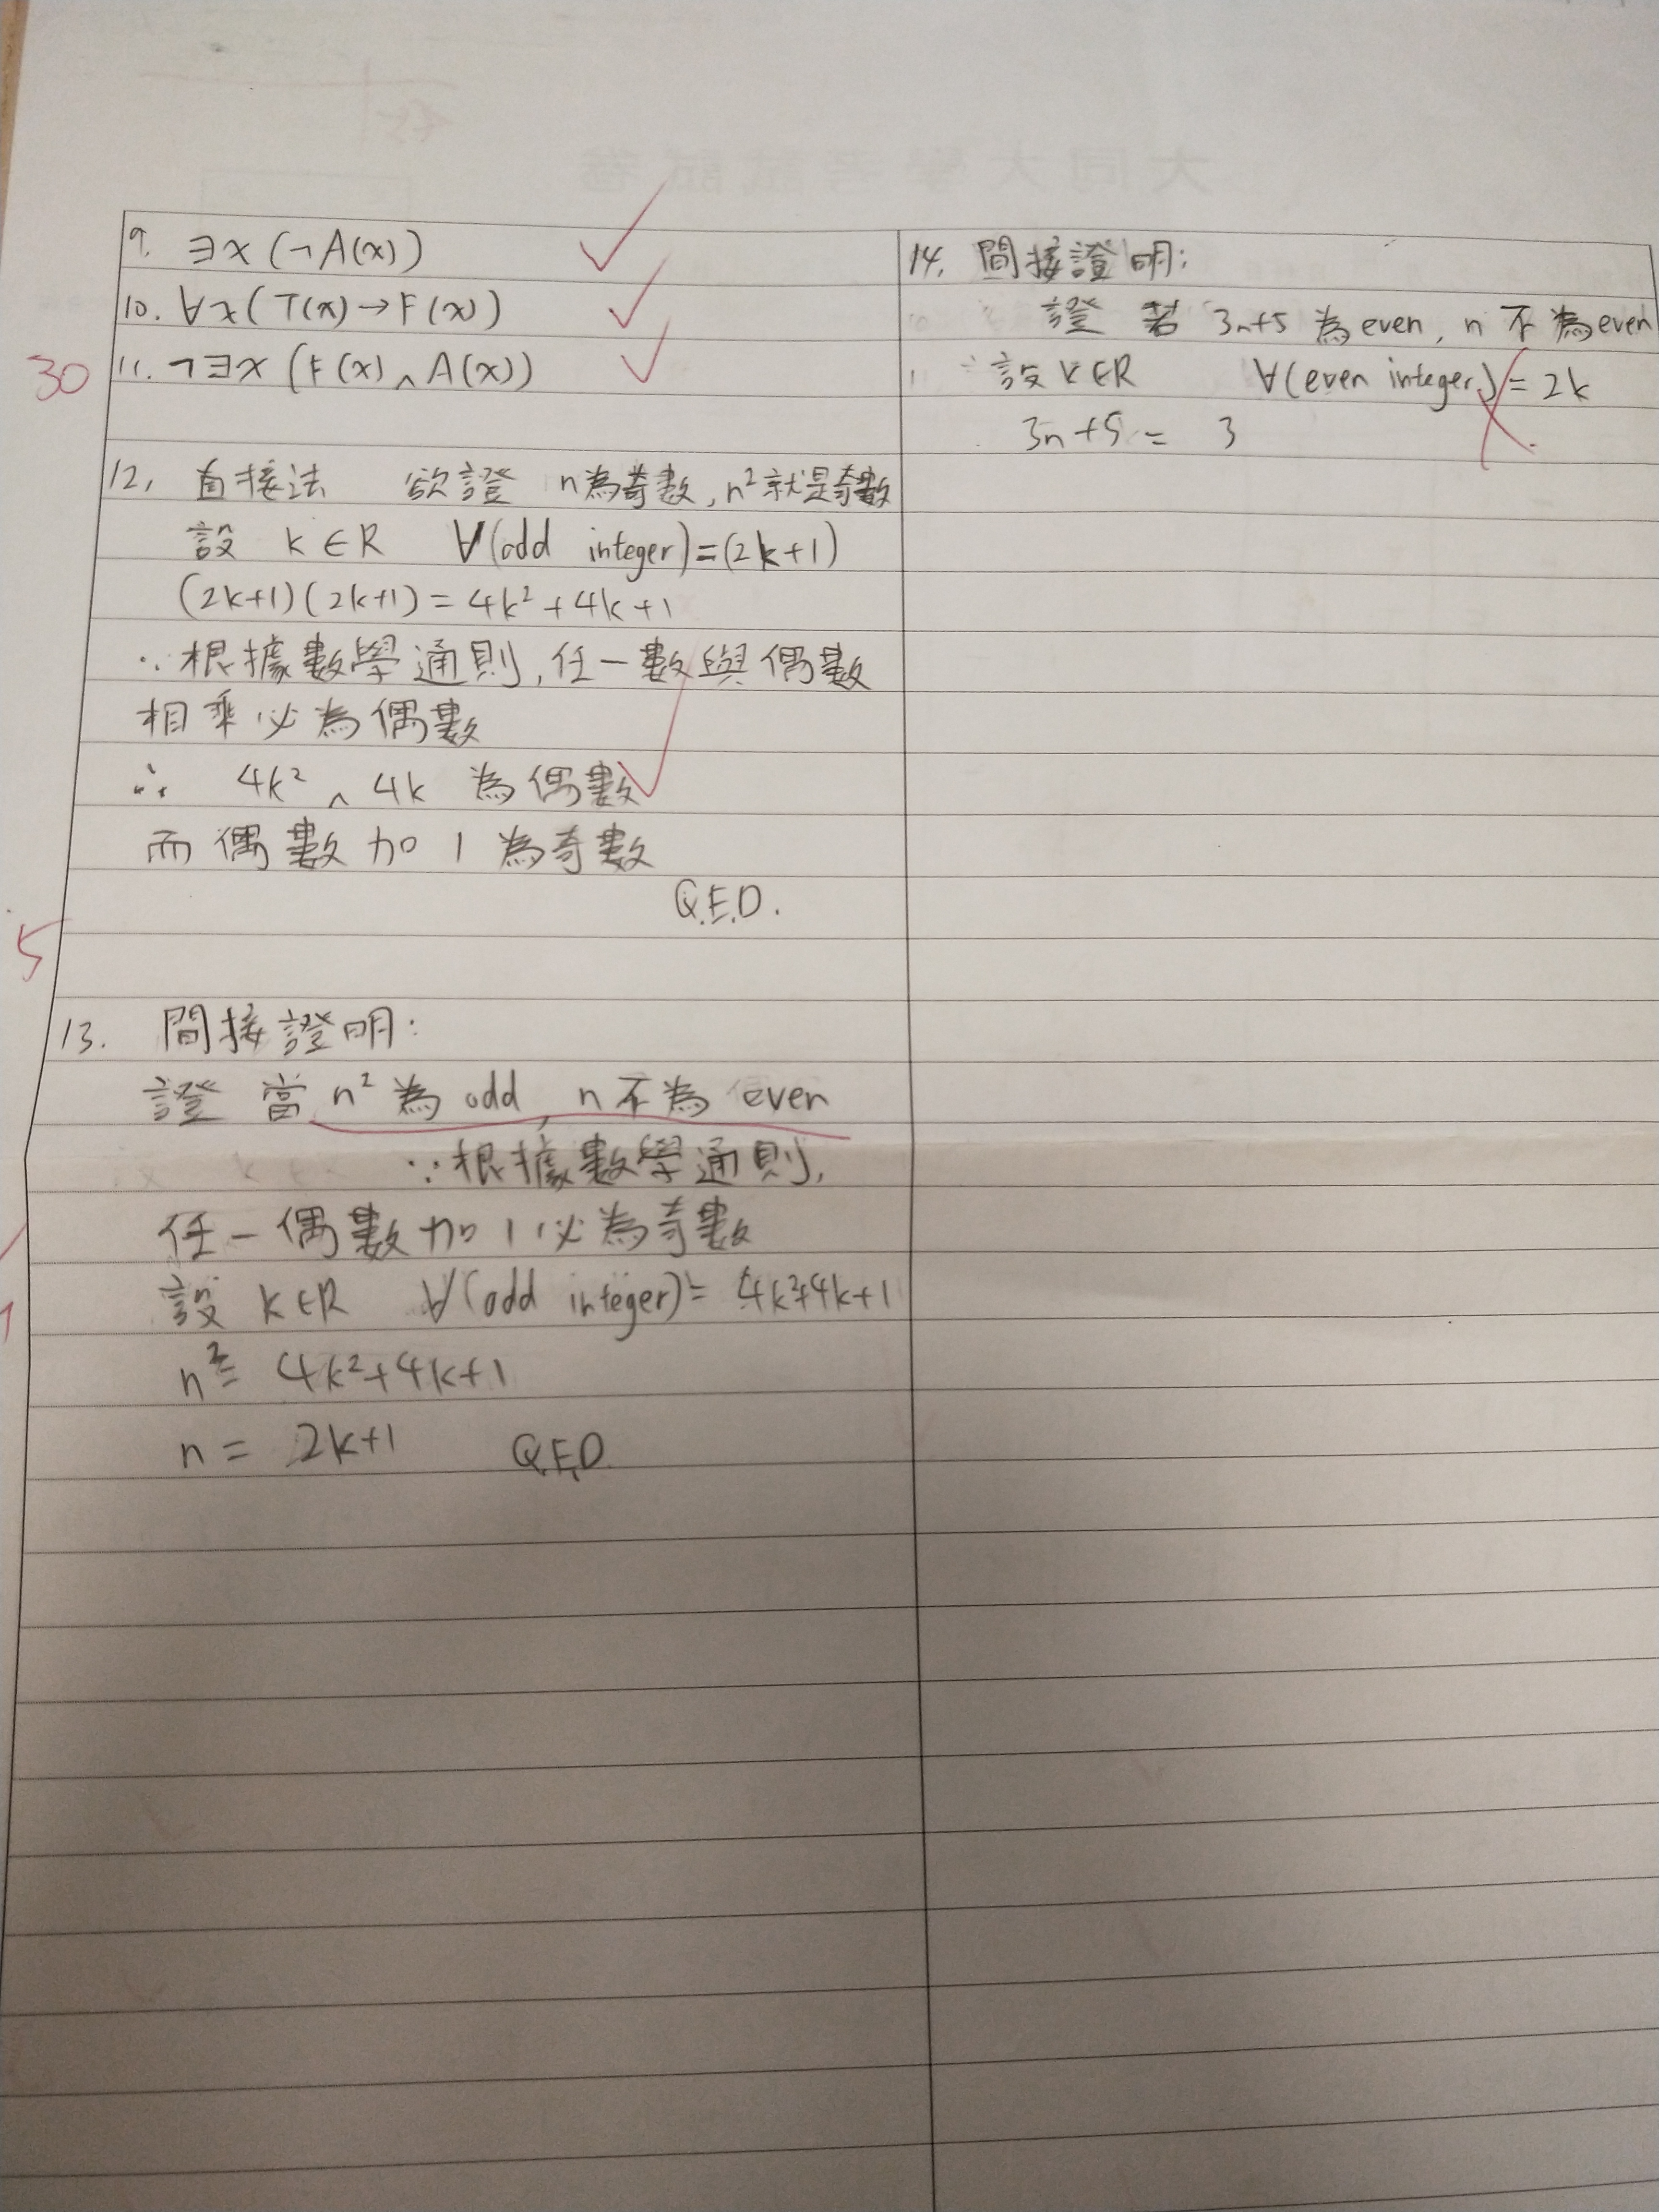 大同大學考試卷
9. ∃x (¬A(x))
10. ∀x (T(x)→F(x))
30
11. ¬∃x (F(x)∧A(x))
12. 直接法 欲證 n為奇數, n²就是奇數
設 k∈R ∀(odd integer)=(2k+1)
(2k+1)(2k+1)=4k²+4k+1
∵根據數學通則,任一數與偶數
相乘必為偶數
∴ 4k²∧4k 為偶數
而偶數加1為奇數
Q.E.D.
5
13. 間接證明:
證 當 n²為 odd, n不為 even
∵根據數學通則,
任一偶數加1必為奇數
設 k∈R ∀(odd integer)= 4k²+4k+1
n²= 4k²+4k+1
n = 2k+1 Q.E.D
14. 間接證明:
證 若 3n+5 為 even, n 不為 even
設 k∈R ∀(even integer)=2k
3n+5 = 3